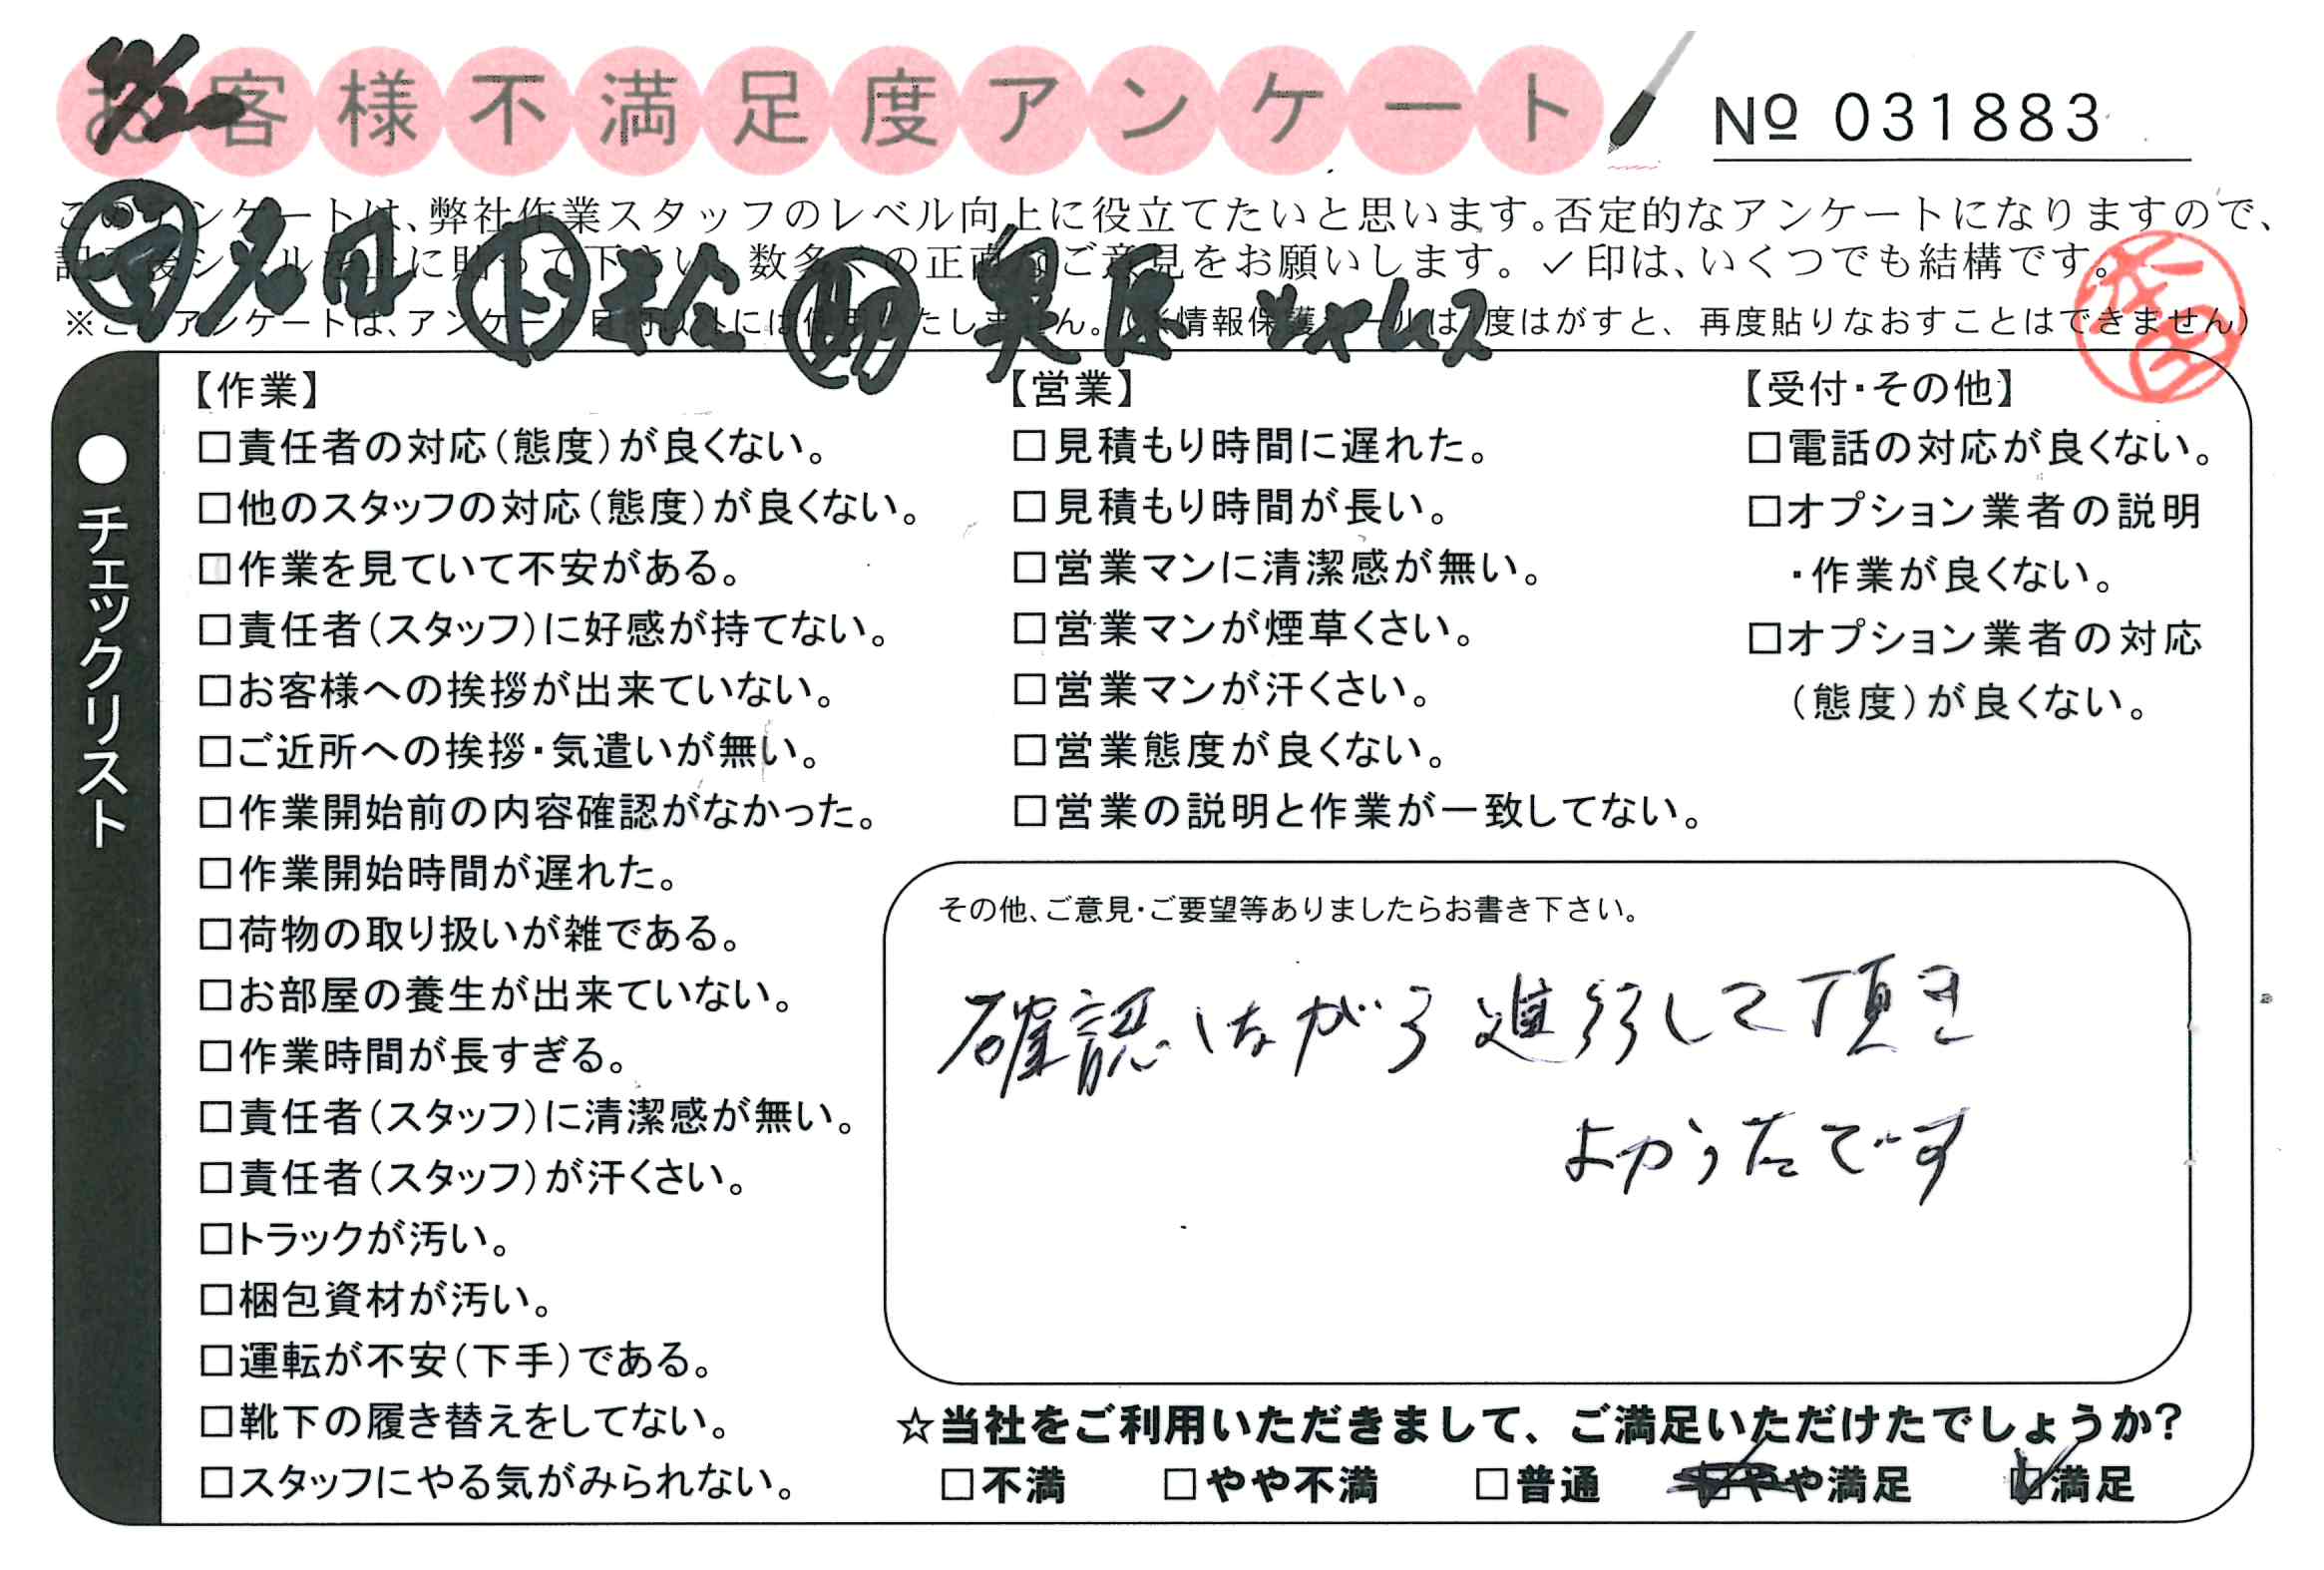 お客様不満足度アンケート
Nº 031883
このアンケートは、弊社作業スタッフのレベル向上に役立てたいと思います。否定的なアンケートになりますので、
シールに貼って下さい。数多くの正直なご意見をお願いします。✓印は、いくつでも結構です。
名田 ㊦松 奥原 ジェームス
※このアンケートは、アンケート目的以外には使用いたしません。(※情報保護シールは1度はがすと、再度貼りなおすことはできません)
●チェックリスト
【作業】
□責任者の対応(態度)が良くない。
□他のスタッフの対応(態度)が良くない。
□作業を見ていて不安がある。
□責任者(スタッフ)に好感が持てない。
□お客様への挨拶が出来ていない。
□ご近所への挨拶・気遣いが無い。
□作業開始前の内容確認がなかった。
□作業開始時間が遅れた。
□荷物の取り扱いが雑である。
□お部屋の養生が出来ていない。
□作業時間が長すぎる。
□責任者(スタッフ)に清潔感が無い。
□責任者(スタッフ)が汗くさい。
□トラックが汚い。
□梱包資材が汚い。
□運転が不安(下手)である。
□靴下の履き替えをしてない。
□スタッフにやる気がみられない。
【営業】
□見積もり時間に遅れた。
□見積もり時間が長い。
□営業マンに清潔感が無い。
□営業マンが煙草くさい。
□営業マンが汗くさい。
□営業態度が良くない。
□営業の説明と作業が一致してない。
【受付・その他】
□電話の対応が良くない。
□オプション業者の説明
・作業が良くない。
□オプション業者の対応
(態度)が良くない。
その他、ご意見・ご要望等ありましたらお書き下さい。
確認しながら進行して頂き
よかったです
☆当社をご利用いただきまして、ご満足いただけたでしょうか?
□不満 □やや不満 □普通 □やや満足 ☑満足